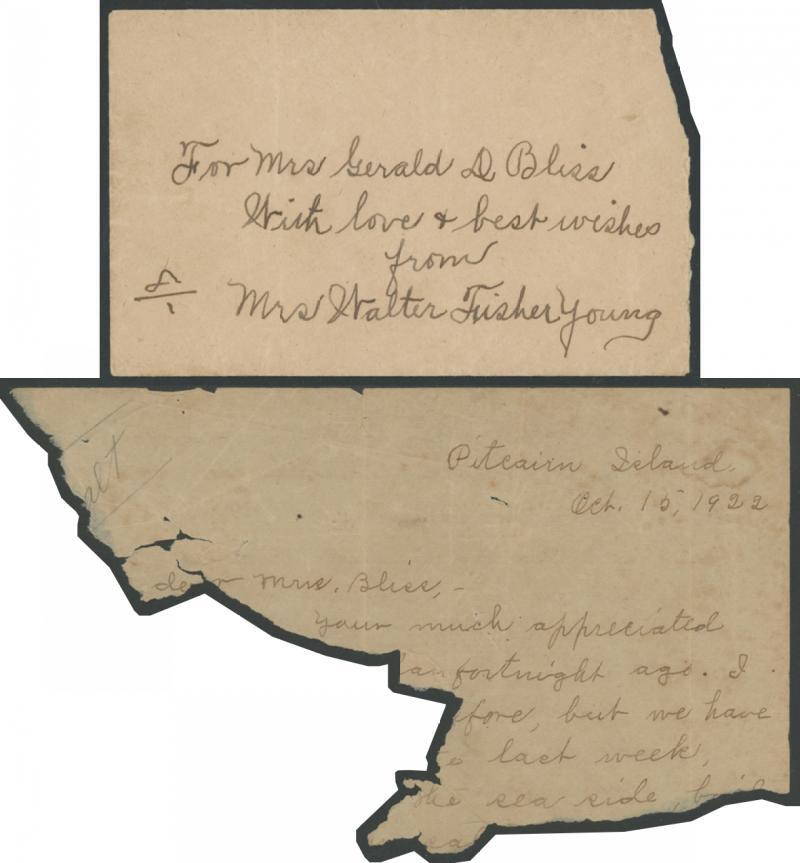 For Mrs Gerald D Bliss
With love & best wishes
from
Mrs Walter Fisher Young
Pitcairn Island.
Oct. 15, 1922
dear Mrs. Bliss, –
Your much appreciated
fortnight ago. I
efore, but we have
last week,
the sea side,